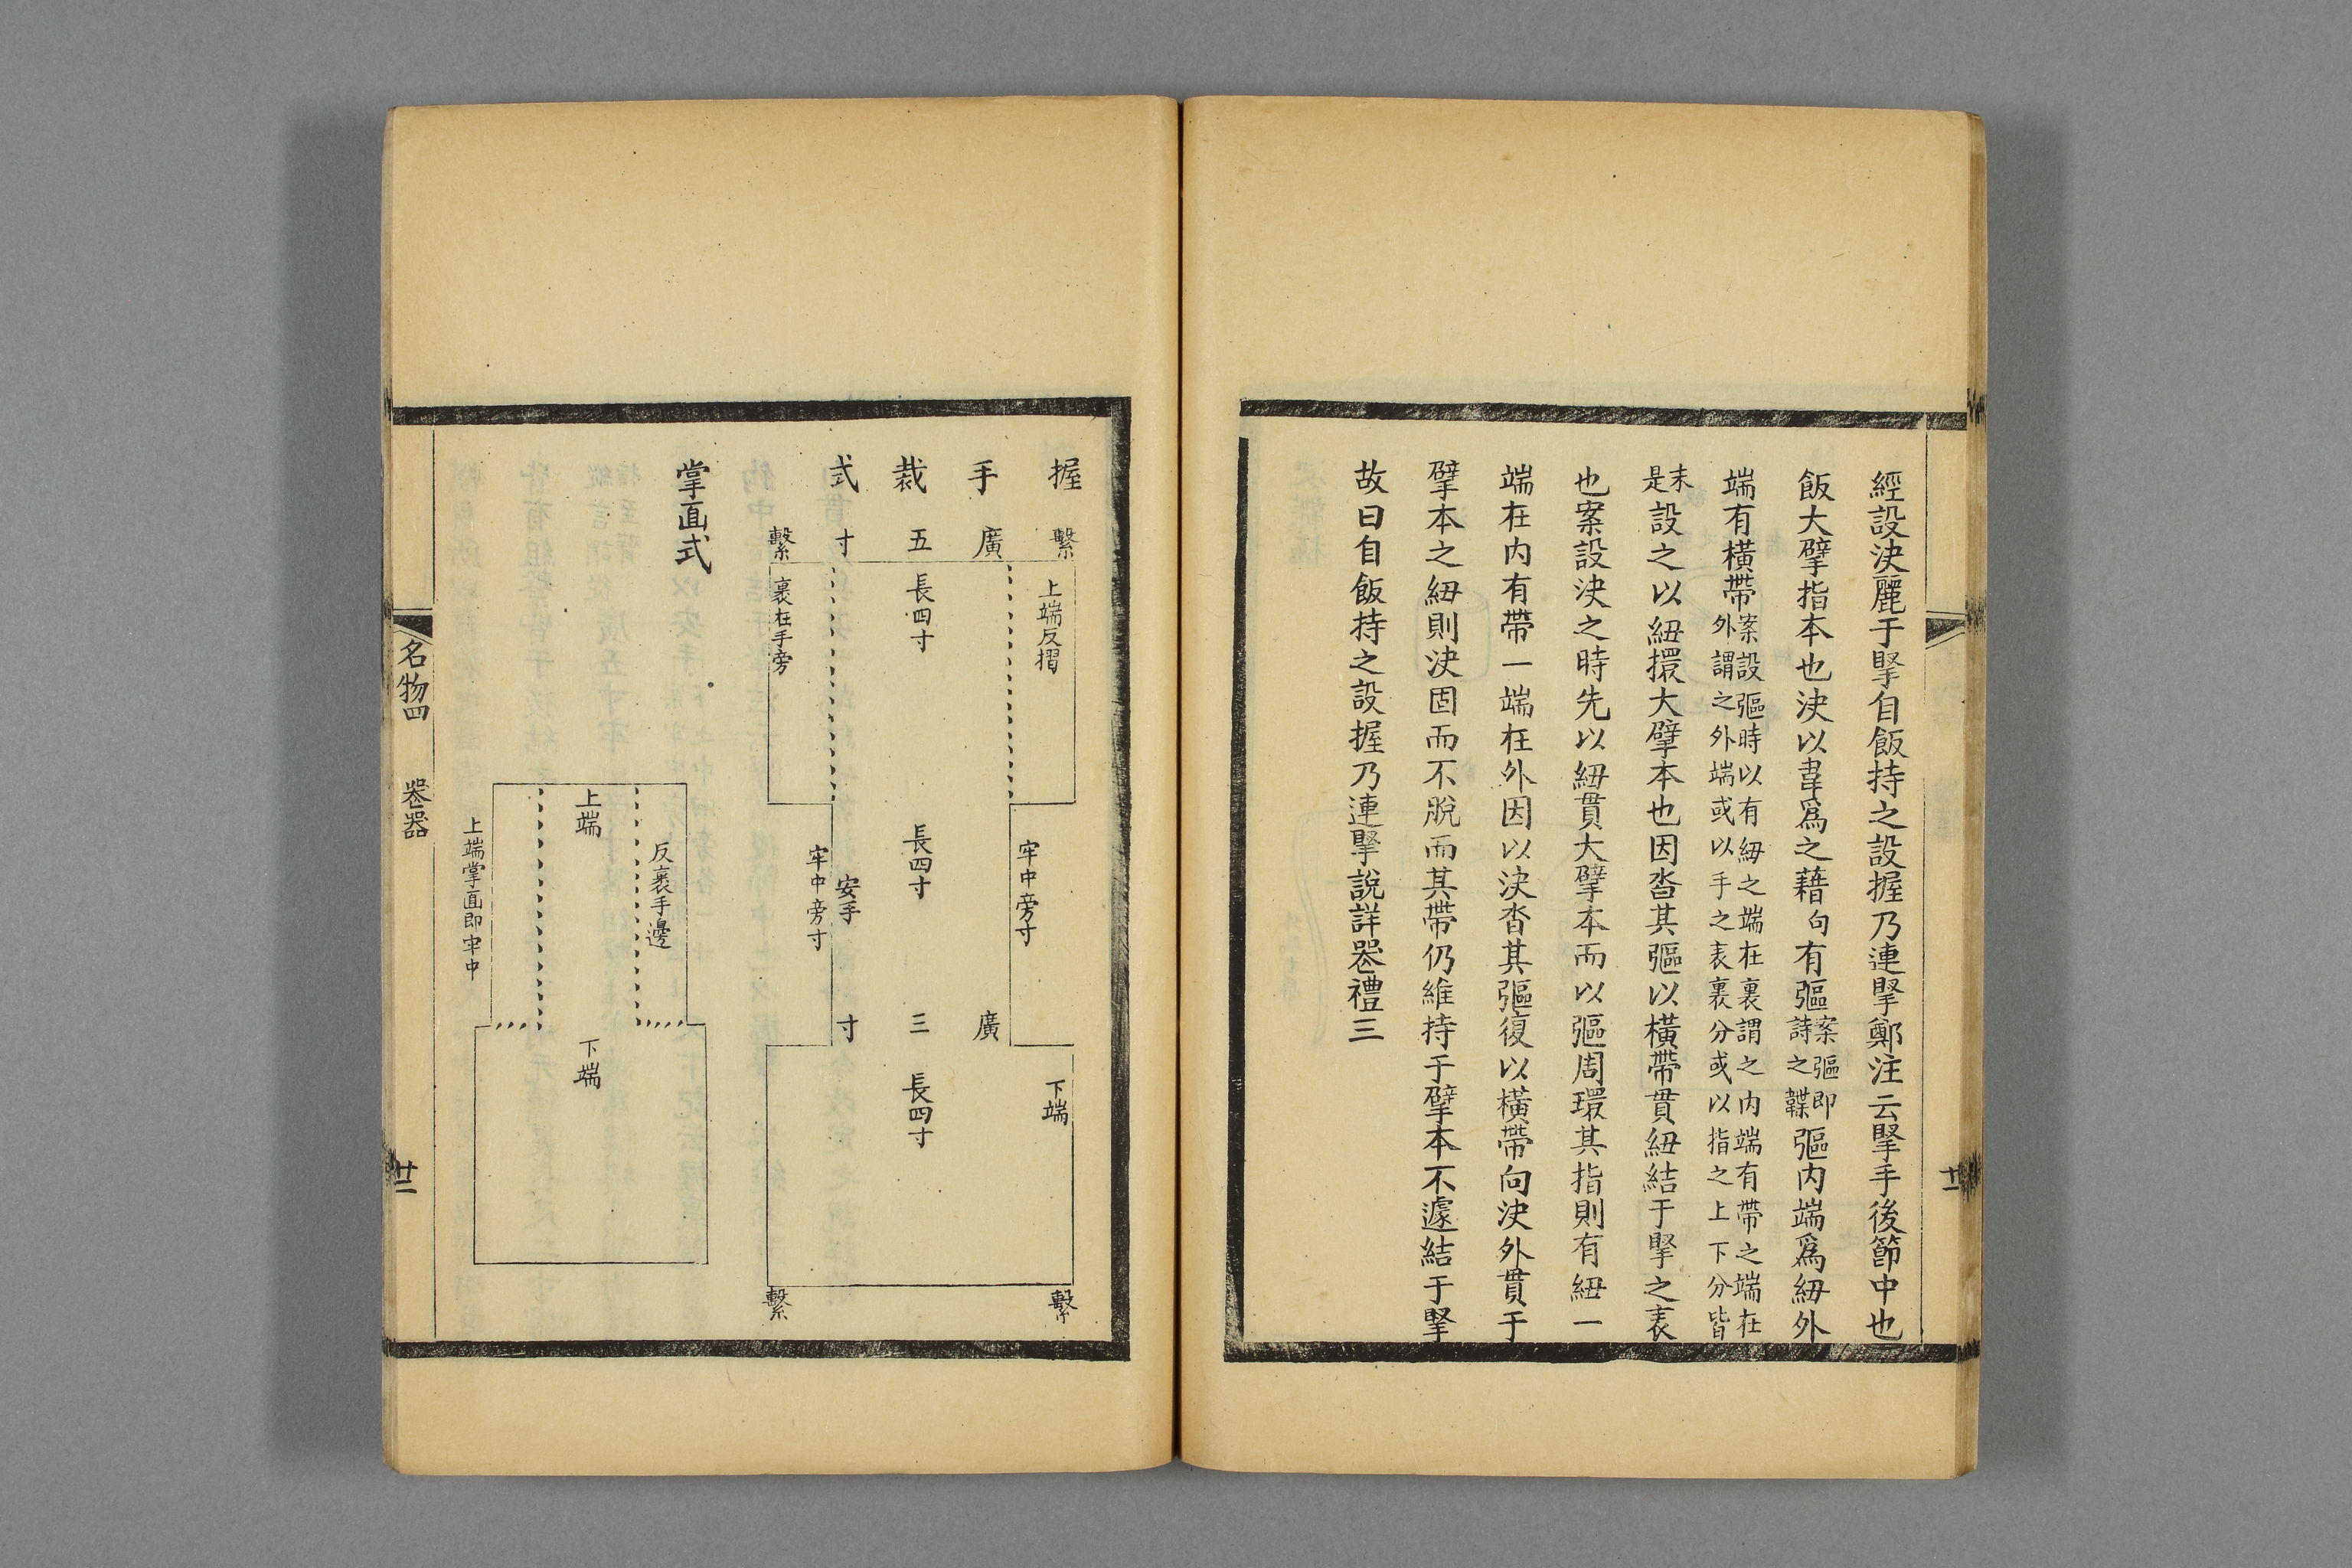 經設決麗于掔自飯持之設握乃連掔鄭注云掔手後節中也
飯大擘指本也決以韋爲之藉句有彄案彄即詩之韘彄內端爲紐外
端有橫帶案設彄時以有紐之端在裏謂之內端有帶之端在外謂之外端或以手之表裏分或以指之上下分皆
未是設之以紐擐大擘本也因沓其彄以橫帶貫紐結于掔之表
也案設決之時先以紐貫大擘本而以彄周環其指則有紐一
端在內有帶一端在外因以決沓其彄復以橫帶向決外貫于
擘本之紐則決固而不脫而其帶仍維持于擘本不遽結于掔
故曰自飯持之設握乃連掔說詳器禮三
廿一
握手裁式
繫
上端反摺
廣五寸
長四寸
繫
裏在手旁
牢中旁寸
長四寸
安手
牢中旁寸
廣三寸
下端
長四寸
繫
繫
掌面式
反裹手邊
上端
上端掌面即牢中
下端
名物四
器
廿二